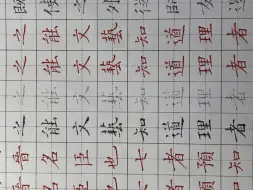 侯之外從
之能文藝知道理者
之能文藝知道理者
之能文藝知道理者
之能文藝知道理者
名臣也七者預知